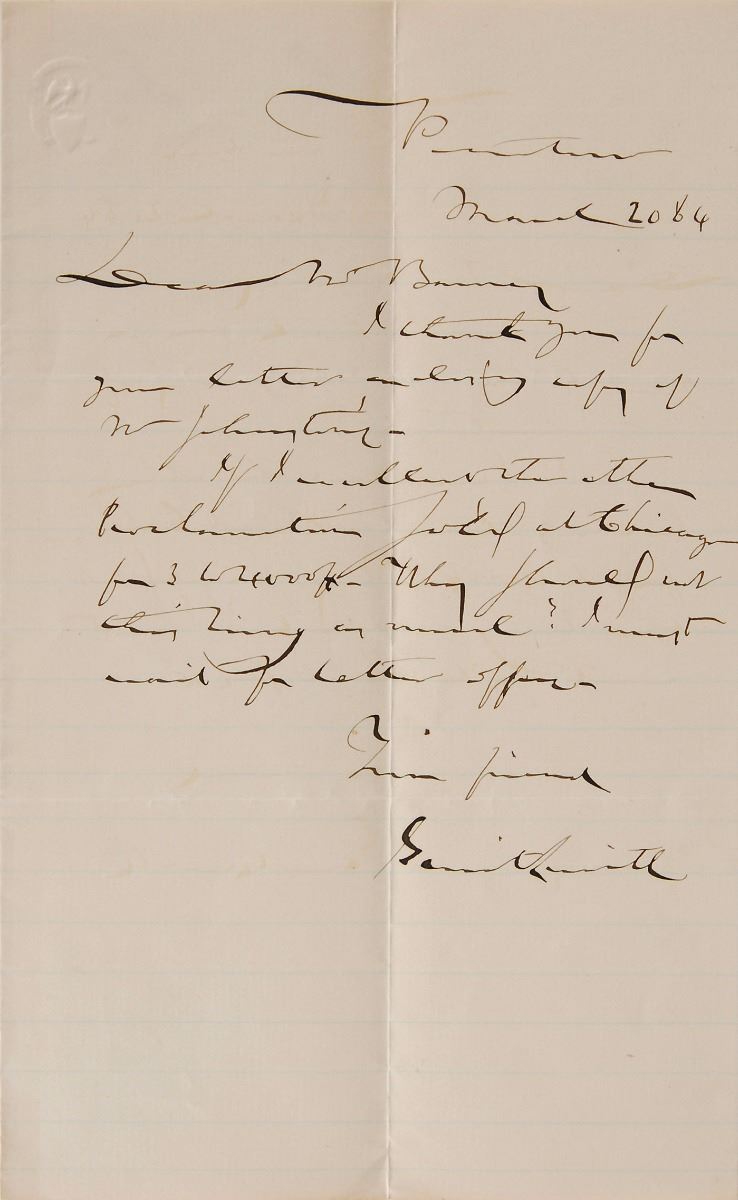 Peterboro
March 20 64
Dear Mr Barney
I thank you for
your letter enclosing copy of
Mr Johnston's -
If I recollect the other
Proclamation sold at Chicago
for 3 to 4000$ - Why should not
this bring as much? I must
wait for better offers -
Your friend
Gerrit Smith